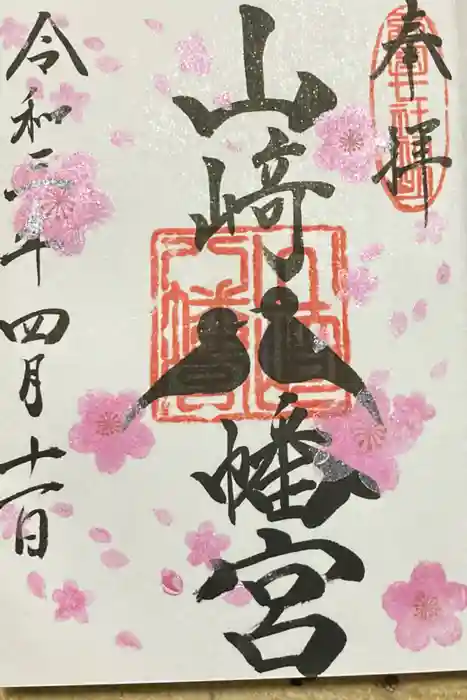 奉拝
山崎八幡宮
令和二年四月十一日